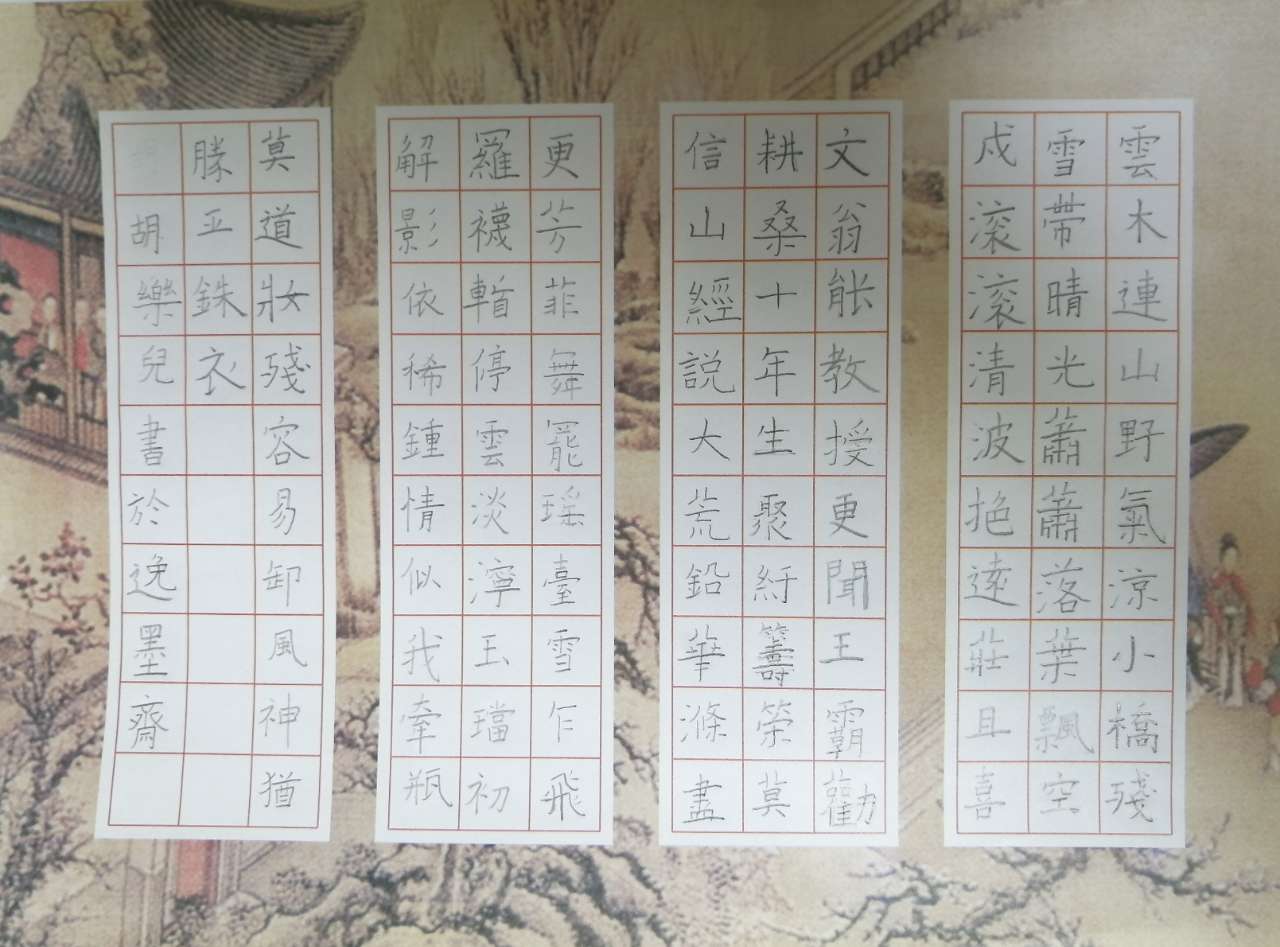 雲木連山野氣涼小橋殘
雪帶晴光蕭蕭落葉飄空
戍滾滾清波抱遠莊且喜
文翁能教授更聞王霸勸
耕桑十年生聚紆籌策莫
信山經説大荒鉛華滌盡
更芳菲舞罷瑤臺雪乍飛
羅襪暫停雲淡濘玉璫初
解影依稀鍾情似我牽瓶
莫道妝殘容易卸風神猶
勝五銖衣
胡樂兒書於逸墨齋